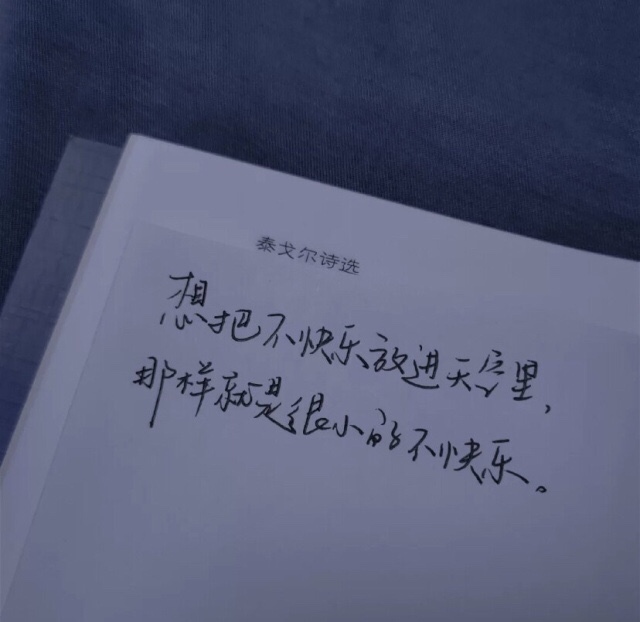 泰戈尔诗选
想把不快乐放进天空里,
那样就是很小的不快乐。